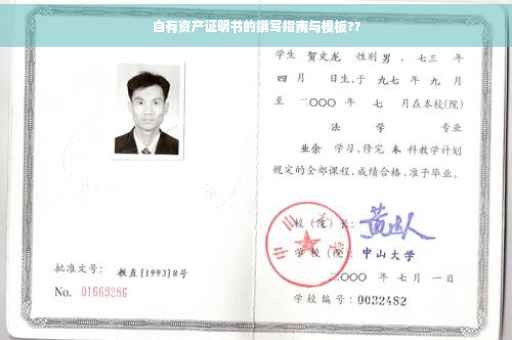 自有资产证明书的撰写指南与模板??
学生 贺文龙 性别 男，七三 年
四 月 日生，于 九七 年 九 月
至 二〇〇〇 年 七 月在本校(院)
法 学 专业
业余 学习，修完 本 科教学计划
规定的全部课程，成绩合格，准予毕业。
校 (院) 长：
学 校 (院)：中山大学
二〇〇〇 年 七 月 一 日
学校编号：0032482
批准文号：教直[1993]8号
No. 01669286